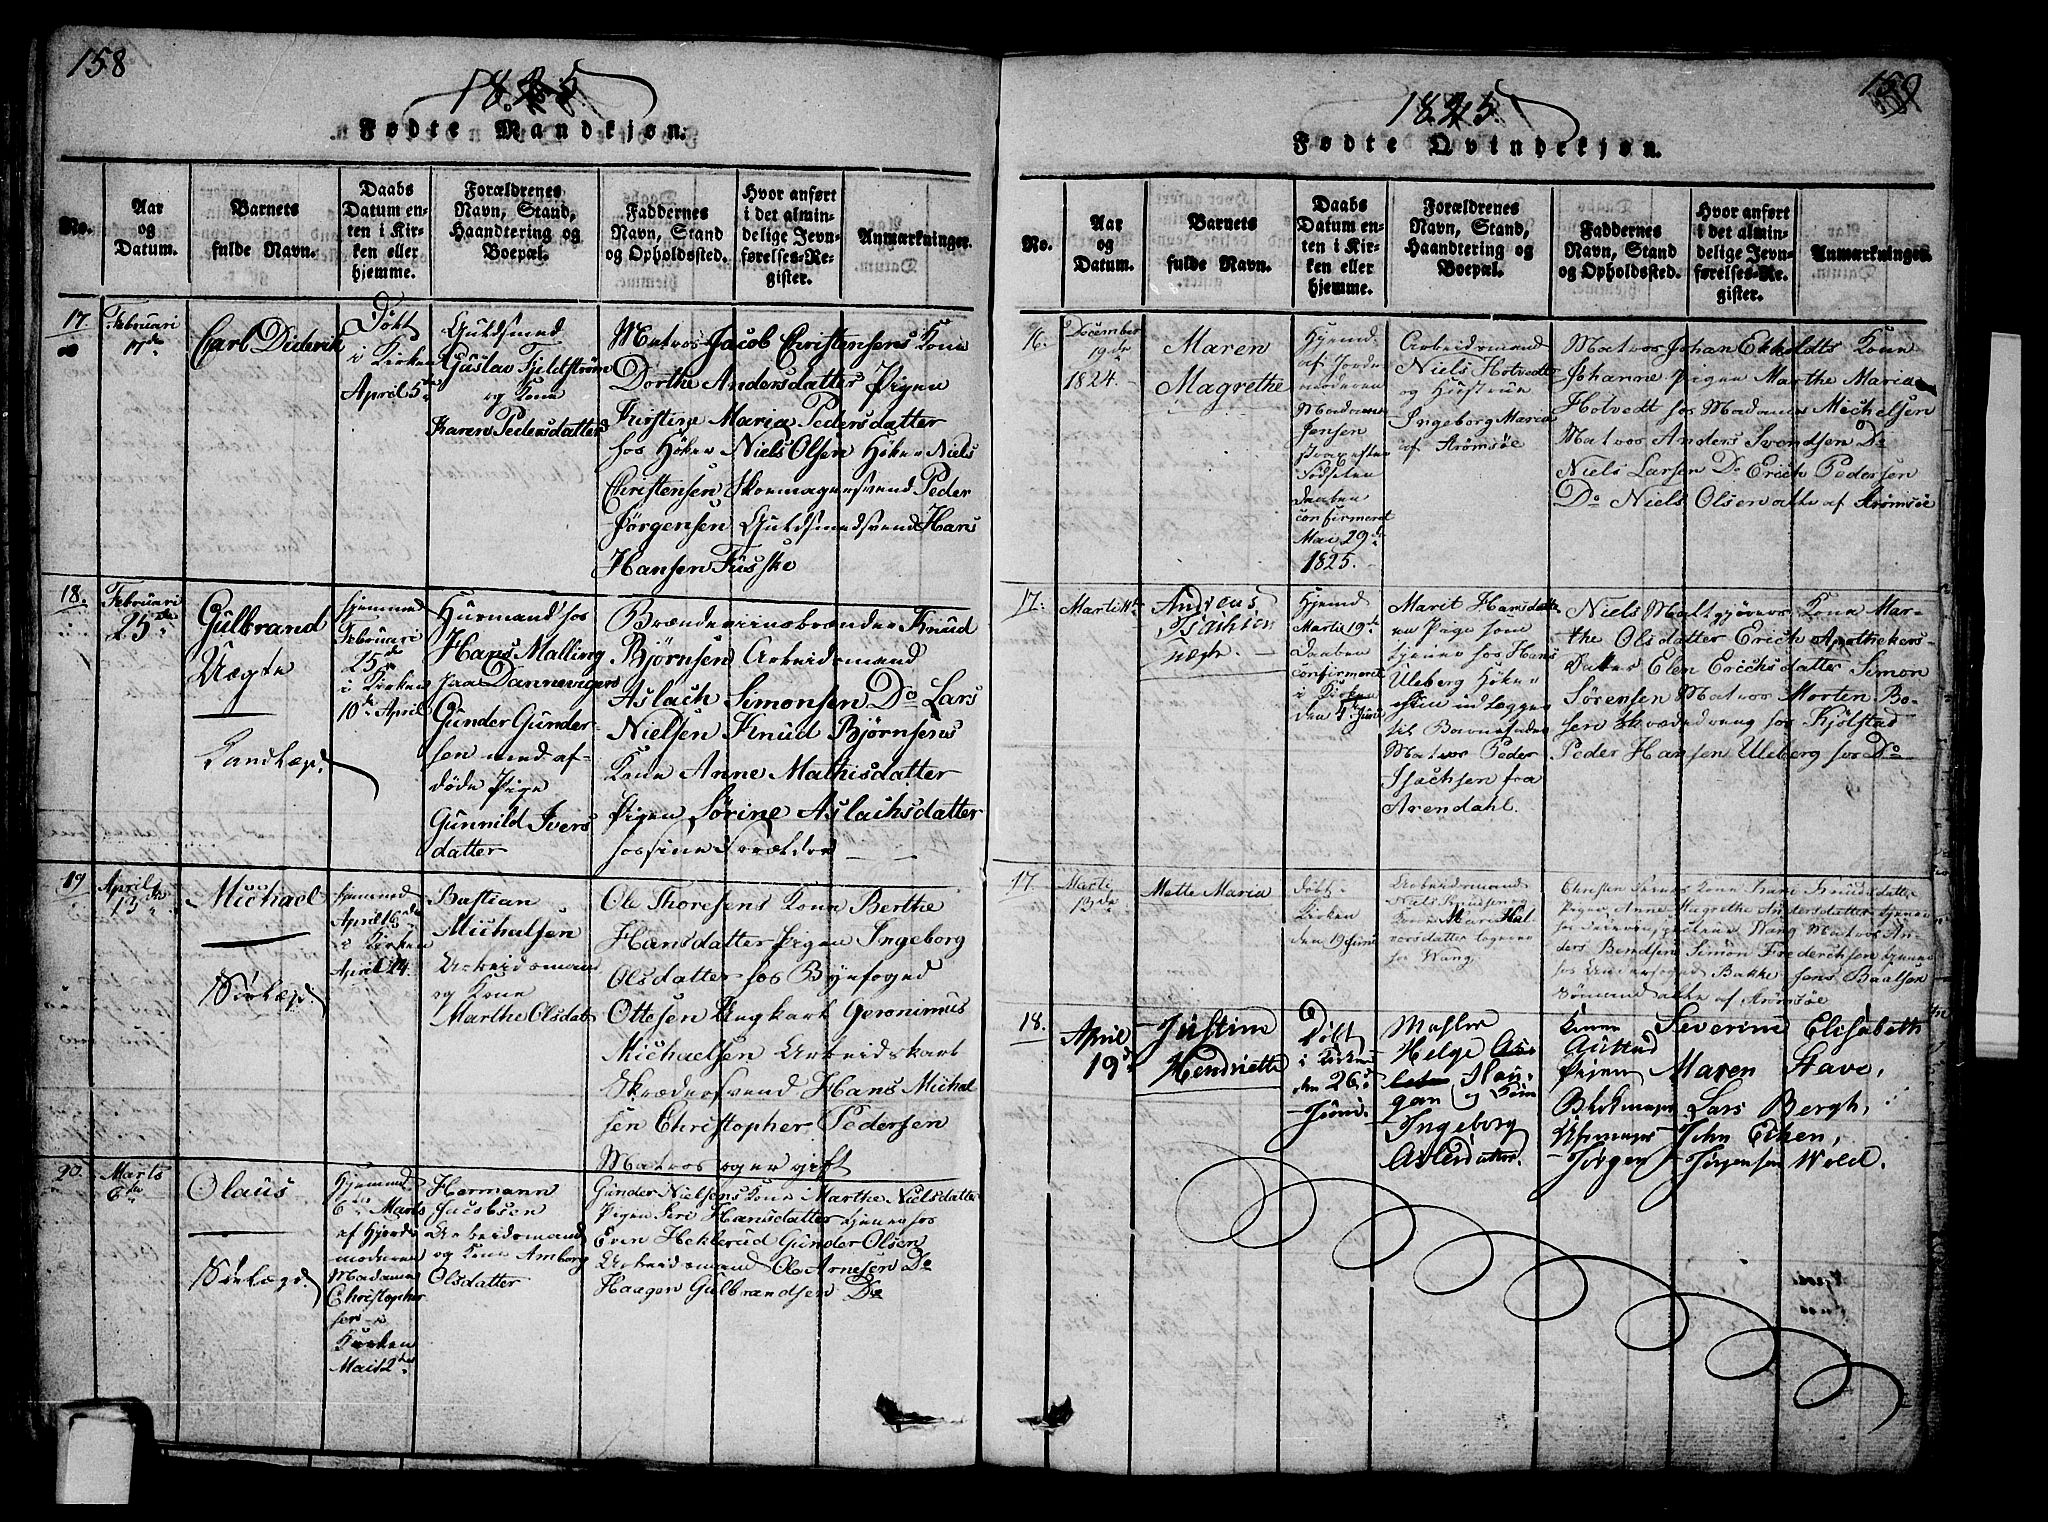 158
1825
Fødte Mandkjøn.
No.
Aar
og
Datum.
Barnets
fulde Navn.
Daabs
Datum en-
ten i Kir-
ken eller
hjemme.
Forældrenes
Navn, Stand,
Haandtering og
Boepæl.
Faddernes
Navn, Stand
og Opholdssted.
Hvor anført
i det almin-
delige Jevn-
førelses-Re-
gister.
Anmærkninger.
17.
Februari
17de
Carl Diderik
Døbt
i Kirken
April 5te
Guldsmed
Gustav Fjeldstrøm
og Kone
Karen Pedersdatter
Matros Jacob Christensens Kone
Dorthe Andersdatter Pigen
Kirstine Maria Pedersdatter
hos Høker Niels Olsen Høker Niels
Christensen Skomagersvend Peder
Jørgensen Guldsmedsvend Hans
Hansen Fuske
18.
Februari
25de
Gulbrand
Uægte
hjemmed
Februari
25de
i Kirken
10de April
Huusmand hos
Hans Malling
paa Dannevigen
Gunder Gunder-
sen med af-
døde Pige
Gunnild Ivers
datter
Brændeviinsbrænder Knud
Bjørnsen Arbeidsmand
Aslach Simonsen Do Lars
Nielsen Knud Bjørnsens
Kone Anne Mathisdatter
Pigen Sørine Aslachsdatter
hos sine Forældre
19
April
13de
Michael
hjemmed
April 16de
i Kirken
April 24.
Bastian
Michalsen
Arbeidsmand
og Kone
Marthe Olsdat
Ole Thoresens Kone Berthe
Hansdatter Pigen Ingeborg
Olsdatter hos Byefoged
Ottesen Ungkarl Geronimus
Michaelsen Arbeidskarl
Skrædersvend Hans Michal
sen Christopher Pedersen
Matros og er gift
20.
Marts
6te
Olaus
hjemmed
6te Marts
af Gjorde
moderen
Madame
Christopher
sen i
Kirken
Mai 12te
Hermann
Jacobsen
Arbeidsmand
og Kone Amborg
Olsdatter
Gunder Nielsens Kone Marthe Nielsdatter
Pigen Siri Hansdatter tjener hos
Even Heklerud Gunder Olsen
Arbeidsmand Ole Arnesen Do
Haagen Gulbrandsen Do
159
1825.
Fødte Qvindekjøn.
No.
Aar
og
Datum.
Barnets
fulde Navn.
Daabs
Datum en-
ten i Kir-
ken eller
hjemme.
Forældrenes
Navn, Stand,
Haandtering og
Boepæl.
Faddernes
Navn, Stand
og Opholdssted.
Hvor anført
i det almin-
delige Jevn-
førelses-Re-
gister.
Anmærkninger.
16.
December
19de
1824.
Maren
Magrethe
Hjemd
af Jorde
moderen
Madame
Jensen
strax efter
Fødselen
Daaben
confirmeret
Mai 29de
1825.
Arbeidsmand
Niels Hotvedt
og Hustrue
Ingeborg Maria
af Strømsøe
Matros Johan Ekholdts Kone
Johanne Pigen Marthe Maria
Hotvedt hos Madame Michelsen
Matros Anders Svendsen Do
Niels Larsen Do Erich Pedersen
Do Niels Olsen alle af Strømsøe
17.
Marti
Andreus
Hjemd
Martii 19de
Daaben
confirmeret
i Kirken
den 5 Juni
Marit Hansdatter
en Pige som
tjener hos Hans
Uleberg Høker
til Barnefader
Matros Peder
Isachsen fra
Arendahl.
Niels Kone Mar-
the Olsdatter Erich Apothekers
Datter Elen Erichsdatter Simon
Sørensen Matros Morten Bo-
sen Skrædedreng hos Kjølstad
Peder Hansen Uleberg hos Do
17.
Marti
13de
Mette Maria
døbt
Kirken
den 19 Juni
Arbeidsmand
Niels Knudsen og
Kone Marie Hal
vorsdatter
hos Wang
Christen Kone Knudsdatter
Pigen Anne Magrethe Andersdatter tjener
Wang Matros An-
ders Bendsen Simon Frederichsen
hos Underfoged Bakke Baalsen
Sømand alle af Strømsøe
18.
April
19de
Justine
Henriette
Døbt
i Kirken
den 26de
Juni
Møller
Helge
Hou-
gan og Kone
Ingeborg
Aslesdatter.
Severine Elisabeth
Pigen Maren Stave,
Lars Bergh,
John Eken,
Jørgen Jørgensen Wold.